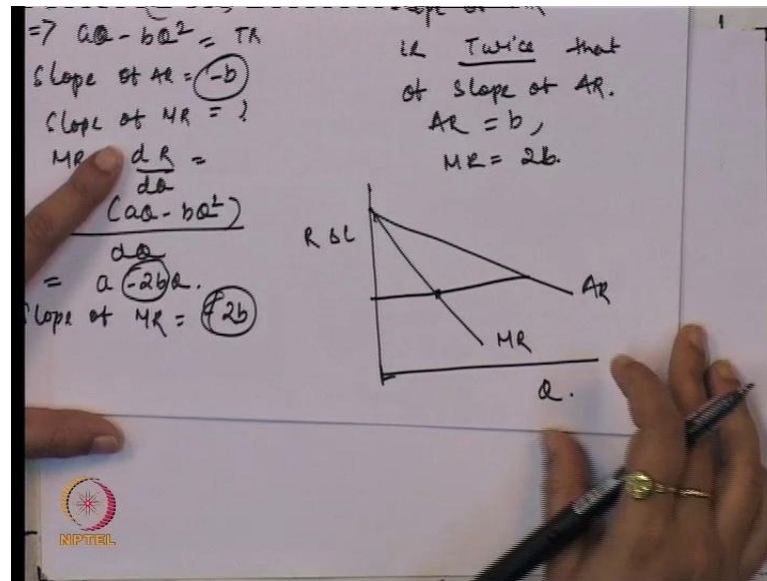 => aQ - bQ² = TR
Slope of AR = -b
Slope of MR = ?
MR dR =
dQ
(aQ - bQ²)
dQ
= a -2bQ.
Slope of MR = -2b
is Twice that
of slope of AR.
AR = b,
MR = 2b.
R &C
AR
MR
Q.
NPTEL